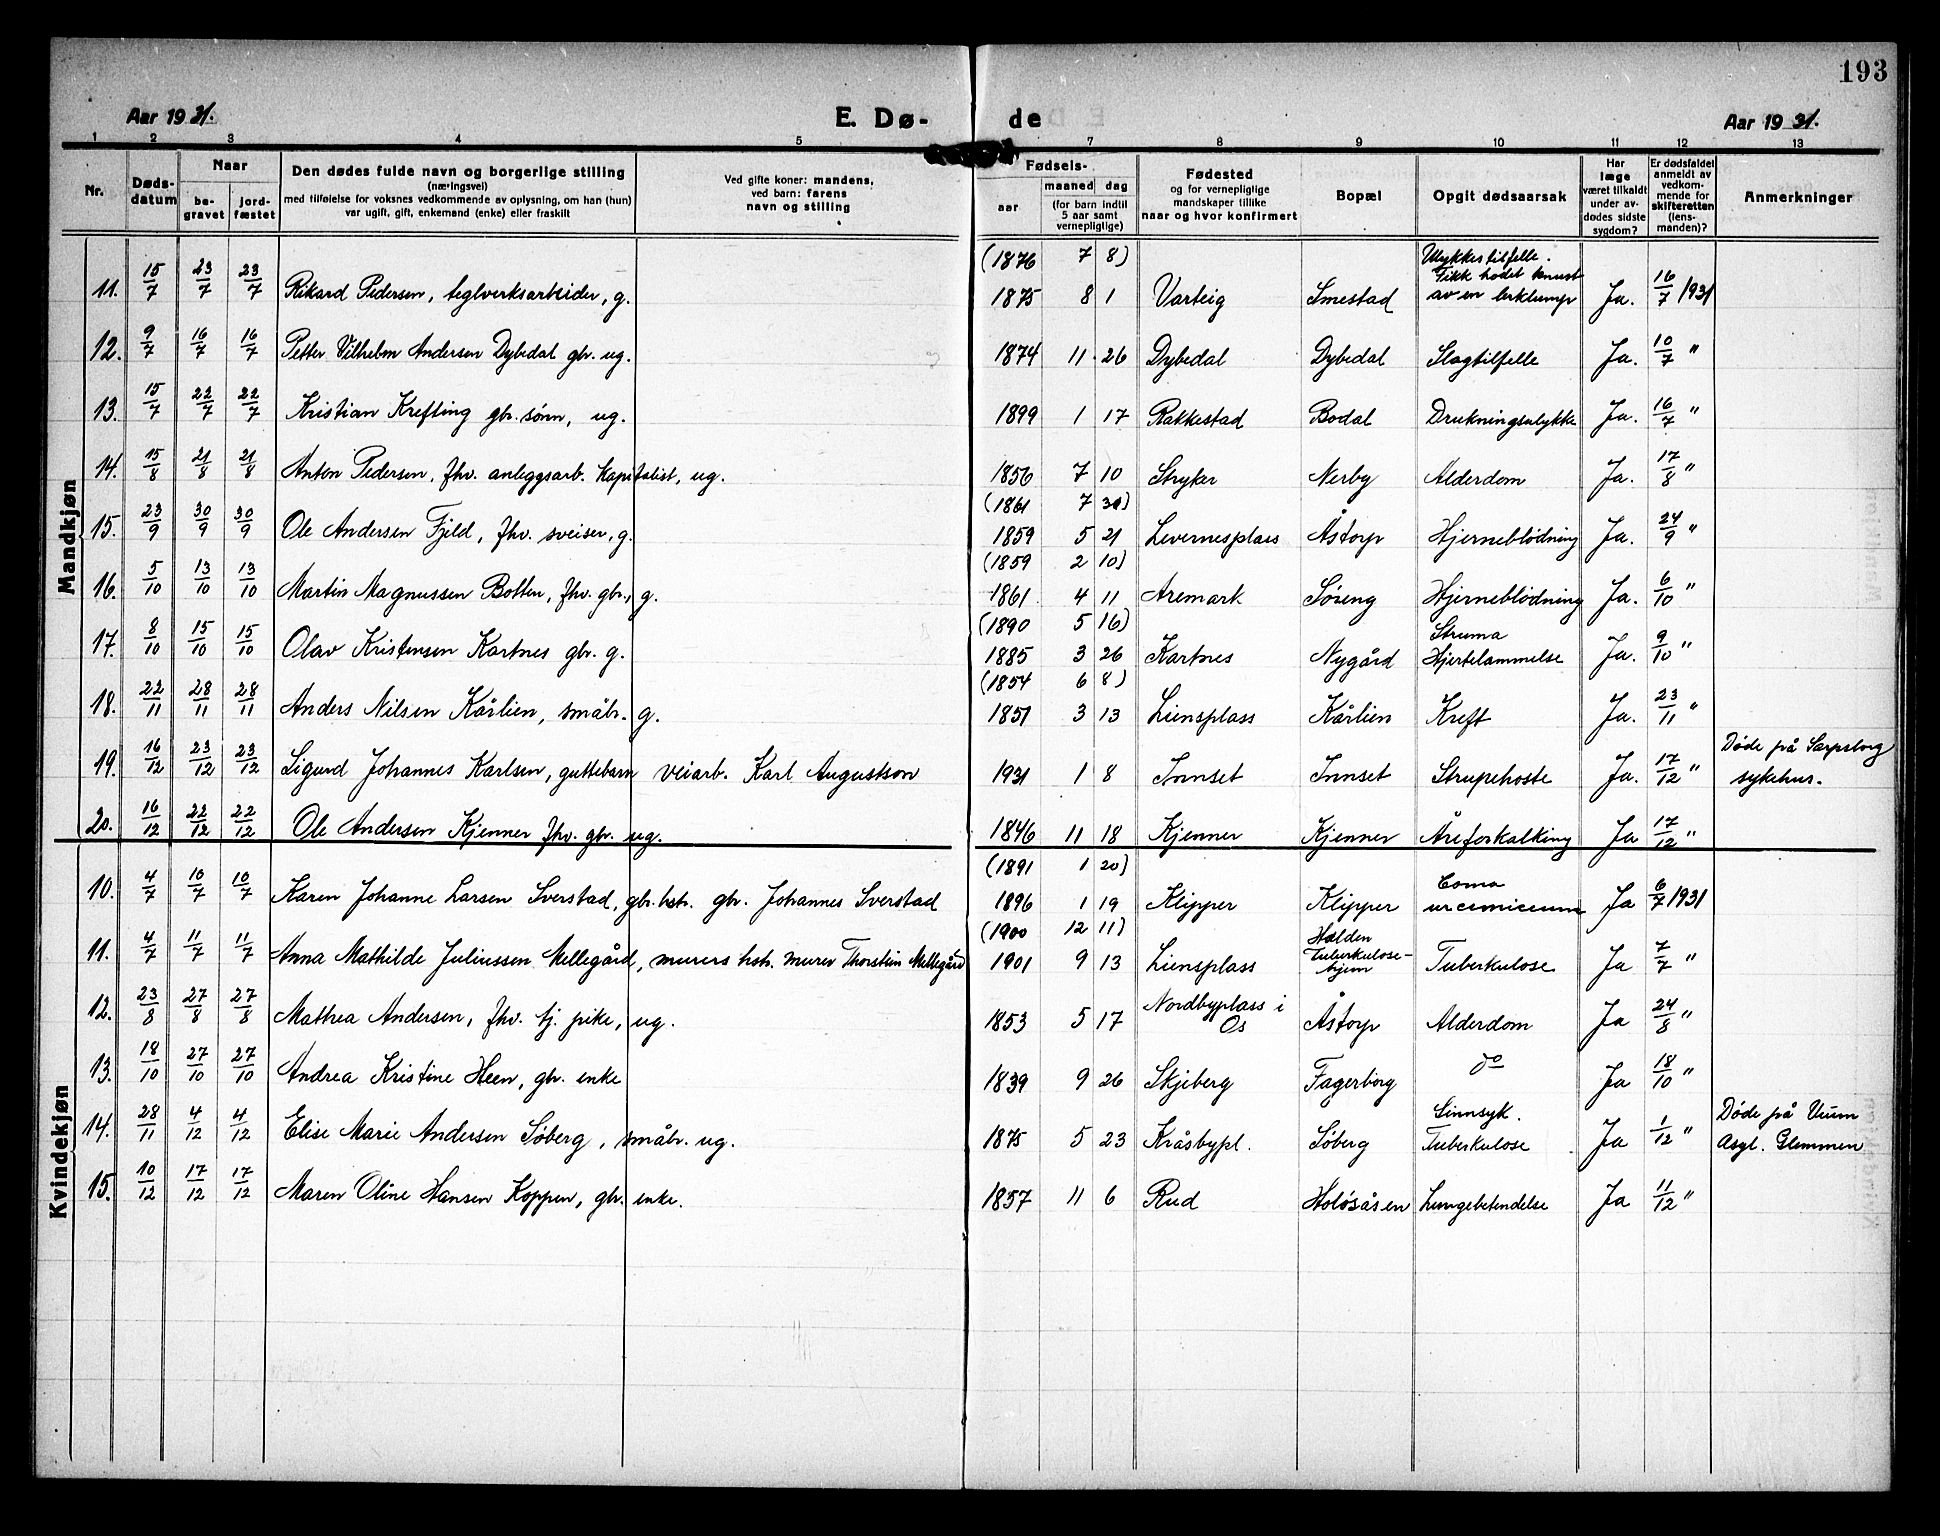 193
Aar 1931. E. Dø- de Aar 1931.
1 2 3 4 5 7 8 9 10 11 12 13
Nr. Døds-datum Naar be-gravet jord-fæstet Den dødes fulde navn og borgerlige stilling (næringsvei) med tilføielse for voksnes vedkommende av oplysning, om han (hun) var ugift, gift, enkemand (enke) eller fraskilt Ved gifte koner: mandens, ved barn: farens navn og stilling Fødsels- aar maaned dag (for barn indtil 5 aar samt vernepligtige) Fødested og for vernepligtige mandskaper tillike naar og hvor konfirmert Bopæl Opgit dødsaarsak Har læge været tilkaldt under av-dødes sidste sygdom? Er dødsfaldet anmeldt av vedkom-mende for skifteretten (lens-manden)? Anmerkninger
Mandkjøn
11. 15/7 23/7 23/7 Rikard Pedersen, teglverksarbeider, g. (1876 7 8) 1875 8 1 Varteig Smestad Ulykkestilfelle. Fikk hodet knust av en lerklump Ja. 16/7 1931
12. 9/7 16/7 16/7 Petter Vilhelm Andersen Dybedal gbr. ug. 1874 11 26 Dybedal Dybedal Slagtilfelle Ja. 10/7 "
13. 15/7 22/7 22/7 Kristian Krefting gbr. sønn, ug. 1899 1 17 Rakkestad Bodal Drukningsulykke Ja. 16/7 "
14. 15/8 21/8 21/8 Anton Pedersen, fhv. anleggsarb. kapitalist, ug. 1856 7 10 Stryker Nerby Alderdom Ja. 17/8 "
15. 23/9 30/9 30/9 Ole Andersen Fjeld, fhv. sveiser, g. (1861 7 31) 1859 5 21 Levernesplass Åstorp Hjerneblödning Ja. 24/9 "
16. 5/10 13/10 13/10 Martin Magnussen Botten, fhv. gbr., g. (1859 2 10) 1861 4 11 Aremark Söreng Hjerneblödning Ja. 6/10 "
17. 8/10 15/10 15/10 Olav Kristensen Kartnes gbr. g. (1890 5 16) 1885 3 26 Kartnes Nygård Struma Hjertelammelse Ja. 9/10 "
18. 22/11 28/11 28/11 Anders Nilsen Kårlien, småbr. g. (1854 6 8) 1851 3 13 Liensplass Kårlien Kreft Ja. 23/11 "
19. 16/12 23/12 23/12 Sigurd Johannes Karlsen, guttebarn veiarb. Karl Augustson 1931 1 8 Innset Innset Strupehoste Ja. 17/12 " Døde på Sarpsborg sykehus.
20. 16/12 22/12 22/12 Ole Andersen Kjenner fhv. gbr. ug. 1846 11 18 Kjenner Kjenner Åreforkalking Ja 17/12 "
Kvindekjøn
10. 4/7 10/7 10/7 Karen Johanne Larsen Sverstad, gbr. hstr. gbr. Johannes Sverstad (1891 1 20) 1896 1 19 Klipper Klipper Coma Ja 6/7 1931
11. 4/7 11/7 11/7 Anna Mathilde Juliussen Mellegård, murers hstr. murer Thorstein Mellegård (1900 12 11) 1901 9 13 Liensplass Halden Tuberkulose-hjem Tuberkulose Ja 7/7 "
12. 23/8 27/8 27/8 Mathea Andersen, fhv. tj. pike, ug. 1853 5 17 Nordbyplass i Os Åstorp Alderdom Ja 24/8 "
13. 18/10 27/10 27/10 Andrea Kristine Heen, gbr. enke 1839 9 26 Skjeberg Fagerborg do Ja 18/10 "
14. 28/11 4/12 4/12 Elise Marie Andersen Söberg, småbr. ug. 1875 5 23 Kråsbypl. Söberg Sinnsyk. Tuberkulose Ja 1/12 " Døde på Asyl. Glemmen
15. 10/12 17/12 17/12 Maren Oline Hansen Koppen, gbr. enke. 1857 11 6 Rud Holösåsen Lungebetendelse Ja 11/12 "